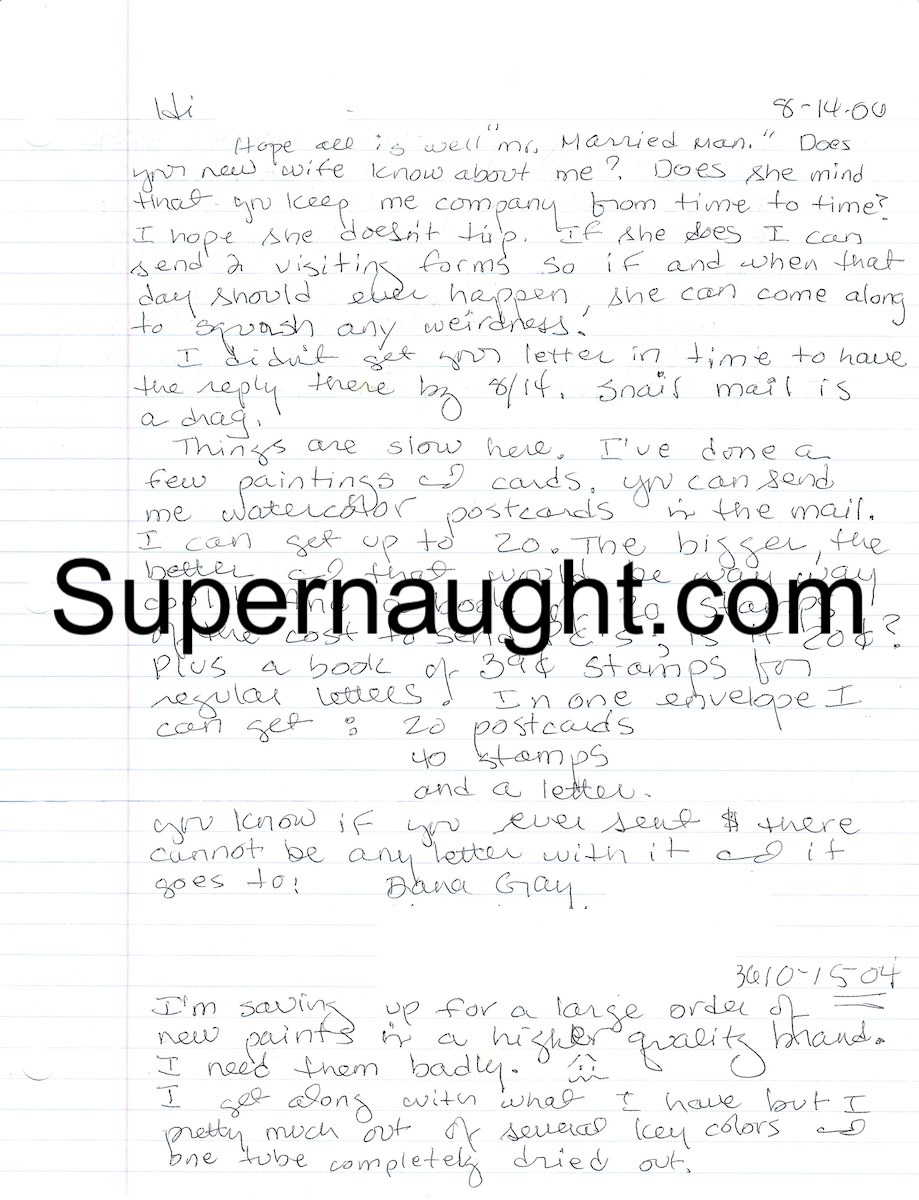 Hi 8-14-06
Hope all is well "mr. Married Man." Does
your new wife know about me? Does she mind
that you keep me company from time to time?
I hope she doesn't trip. If she does I can
send 2 visiting forms so if and when that
day should ever happen, she can come along
to squash any weirdness.
I didn't get your letter in time to have
the reply there by 8/14. Snail mail is
a drag.
Things are slow here. I've done a
few paintings & cards. you can send
me watercolor postcards in the mail.
I can get up to 20. The bigger, the
better & that would be way way
Supernaught.com
stamps
of the cost to send P.C.'s; is it 20¢?
Plus a book of 39¢ stamps for
regular letters! In one envelope I
can get: 20 postcards
40 stamps
and a letter.
you know if you ever sent $ there
cannot be any letter with it & it
goes to: Dana Gray
3610-15-04
I'm saving up for a large order of
new paints in a higher quality brand.
I need them badly.
I get along with what I have but I
pretty much out of several key colors &
one tube completely dried out.